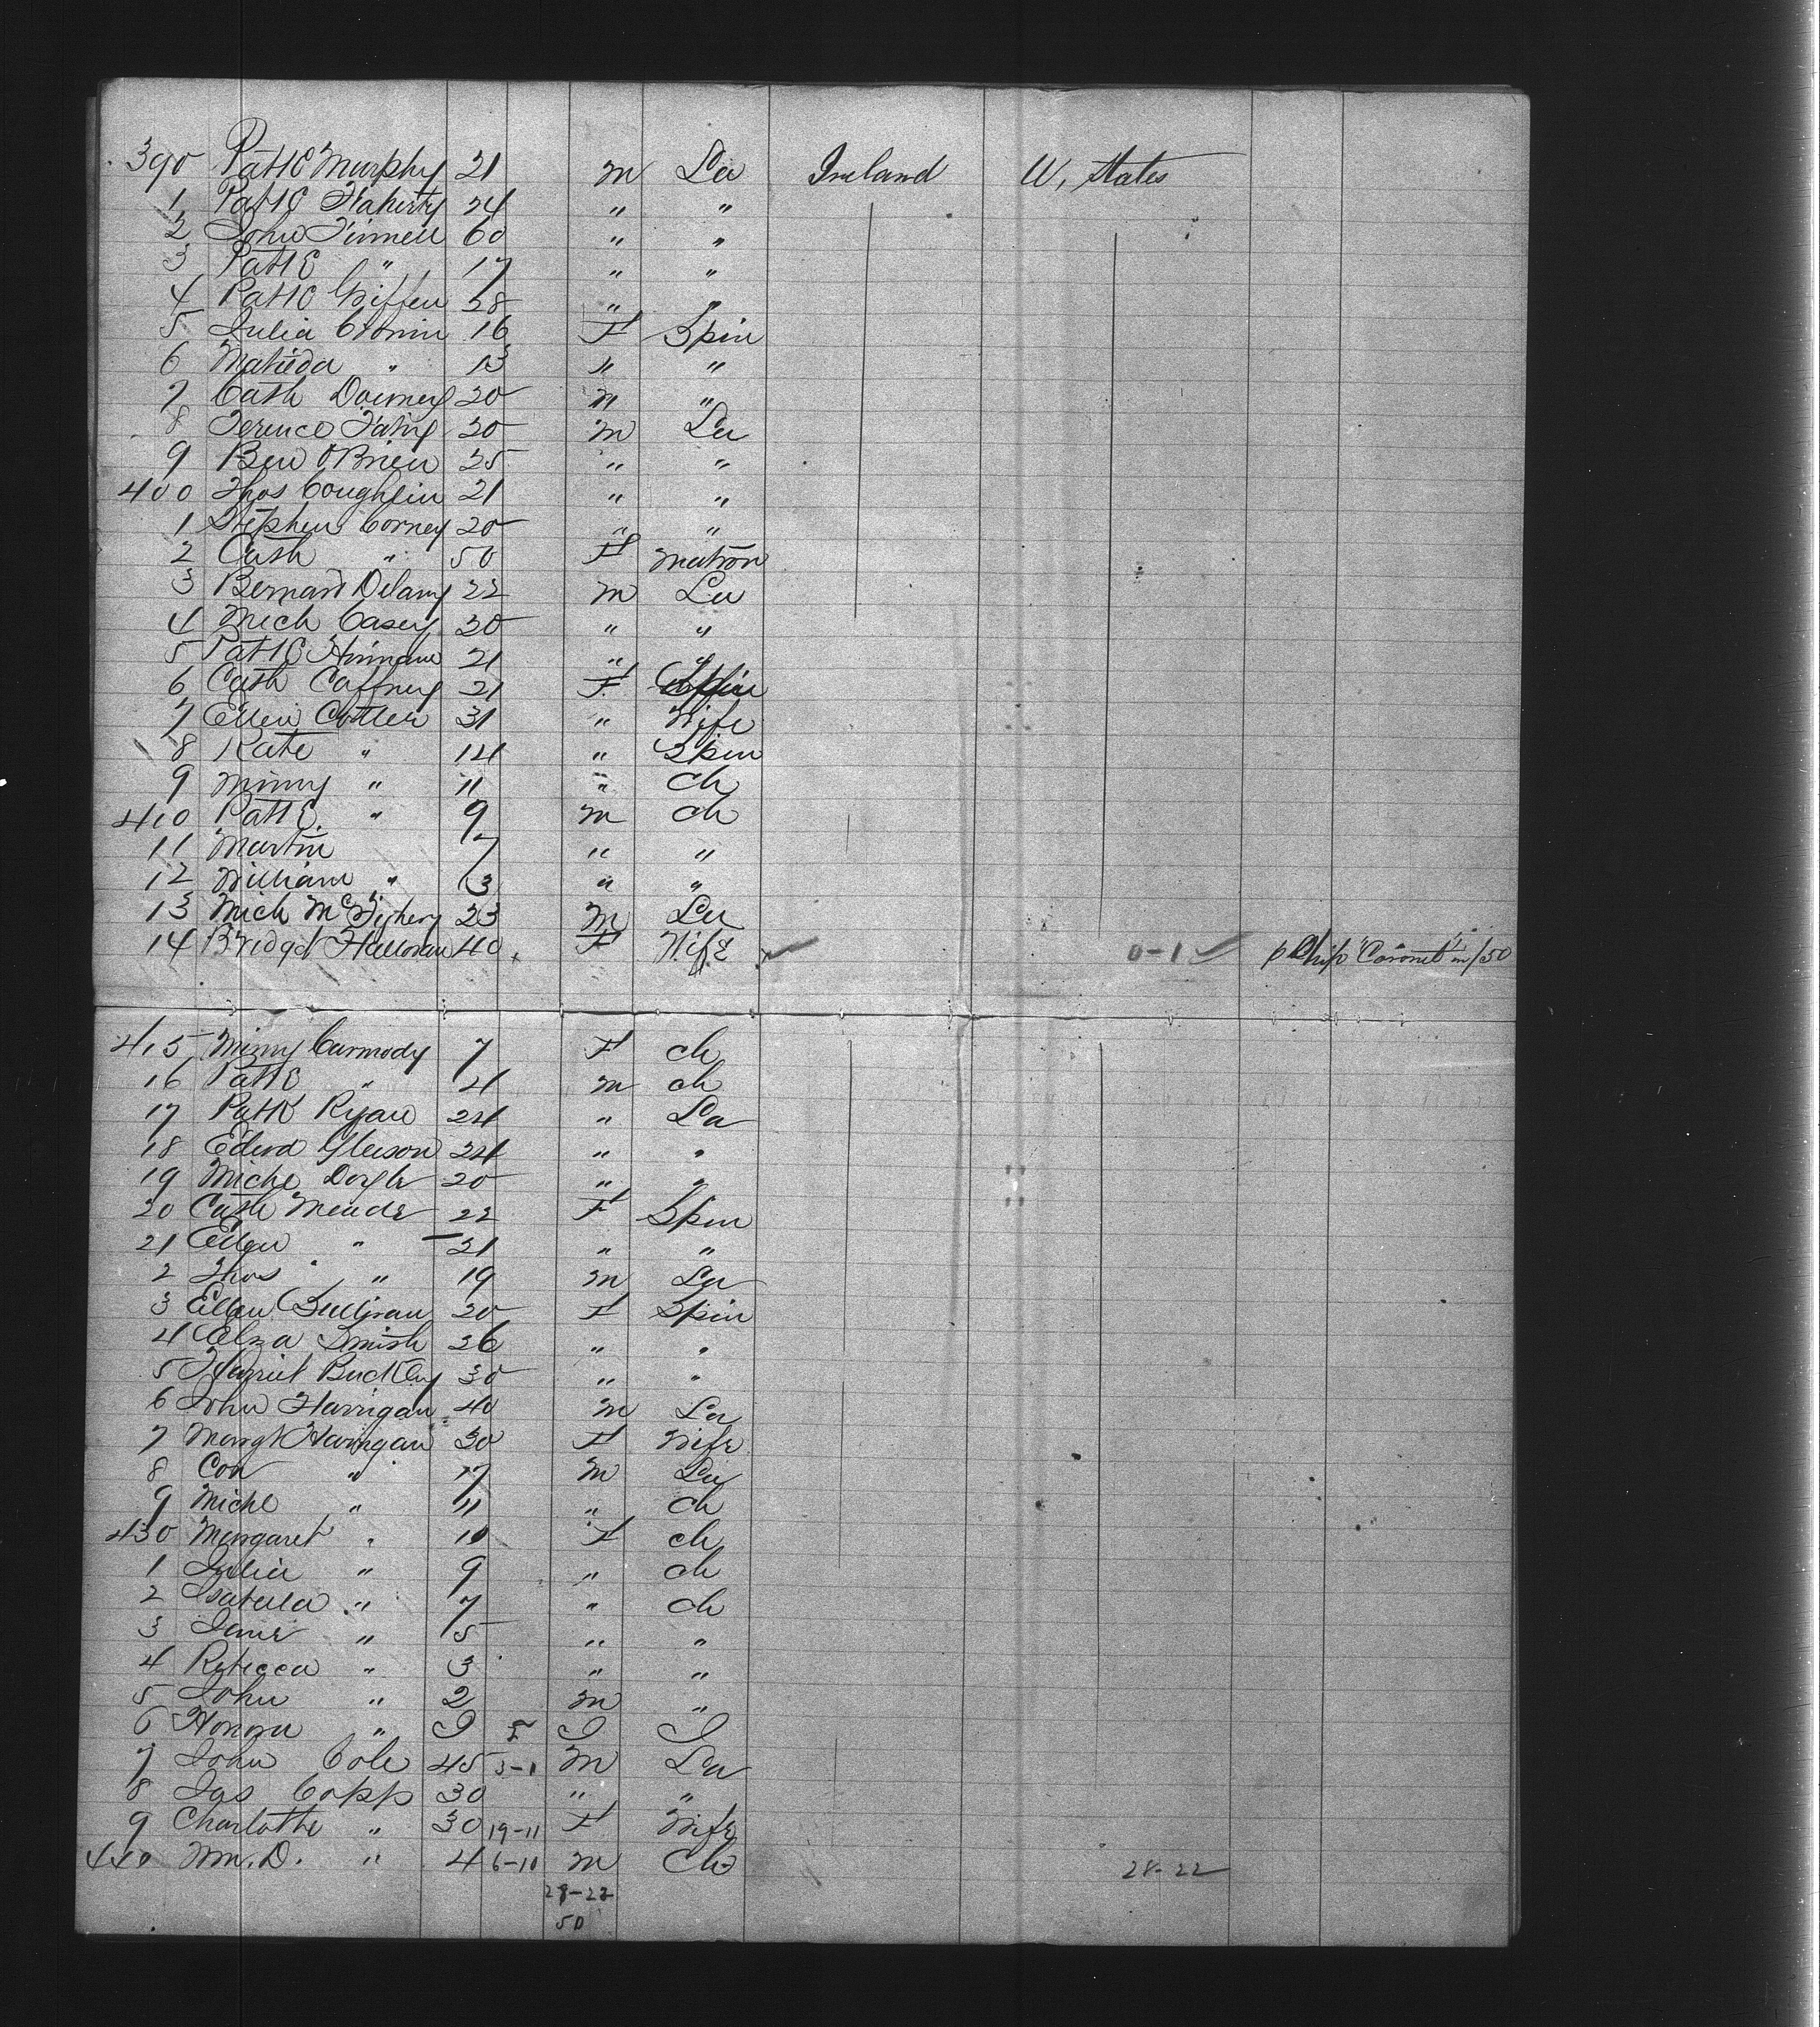 390 Patk Murphy 21 m La Ireland U. States
1 Patk Flaherty 24 " "
2 John Finnell 60 " "
3 Patk " 17 " "
4 Patk Griffen 28 " "
5 Julia Cronin 16 F Spin
6 Matilda " 13 " "
7 Cath 20 "
8 Terence Fahy 20 m La
9 Ben O'Brien 25 " "
400 Thos Coughlin 21 " "
1 Stephen Corney 20 " "
2 Cath " 50 F Matron
3 Bernard Delany 22 m La
4 Mich Casey 20 " "
5 Patk 21 " "
6 Cath Caffney 21 F Spin
7 Ellen Cotter 31 " Wife
8 Kate " 14 " Spin
9 Minny " 11 " Ch
410 Patk " 9 m Ch
11 Martin 7 " "
12 William " 3 " "
13 Mich 23 M La
14 Bridgt Halloran 40 F Wife 0-1 p Ship "Coronet" in /50
415 Minny Carmody 7 F Ch
16 Patk " 4 m Ch
17 Patk Ryan 24 " La
18 Edwd Gleeson 24 " "
19 Michl Doyle 20 " "
20 Cath Meade 22 F Spin
21 Ellen " 21 " "
2 Thos " 19 m La
3 Ellen Sullivan 20 F Spin
4 Elza Smith 26 " "
5 Harriet Buckley 30 " "
6 John Harrigan 40 m La
7 Margt Harrigan 30 F Wife
8 Con " 17 m La
9 Michl " 11 " Ch
430 Margaret " 10 F Ch
1 Julia " 9 " Ch
2 Isabella " 7 " Ch
3 Jane " 5 " "
4 Rebecca " 3 " "
5 John " 2 m "
6 Honora " I I I
7 John Cole 45 3-1 m La
8 Jas Copp 30 " "
9 Charlotte " 30 19-11 F Wife
440 Wm. D. " 4 6-10 m Ch
28-22 28-22
50